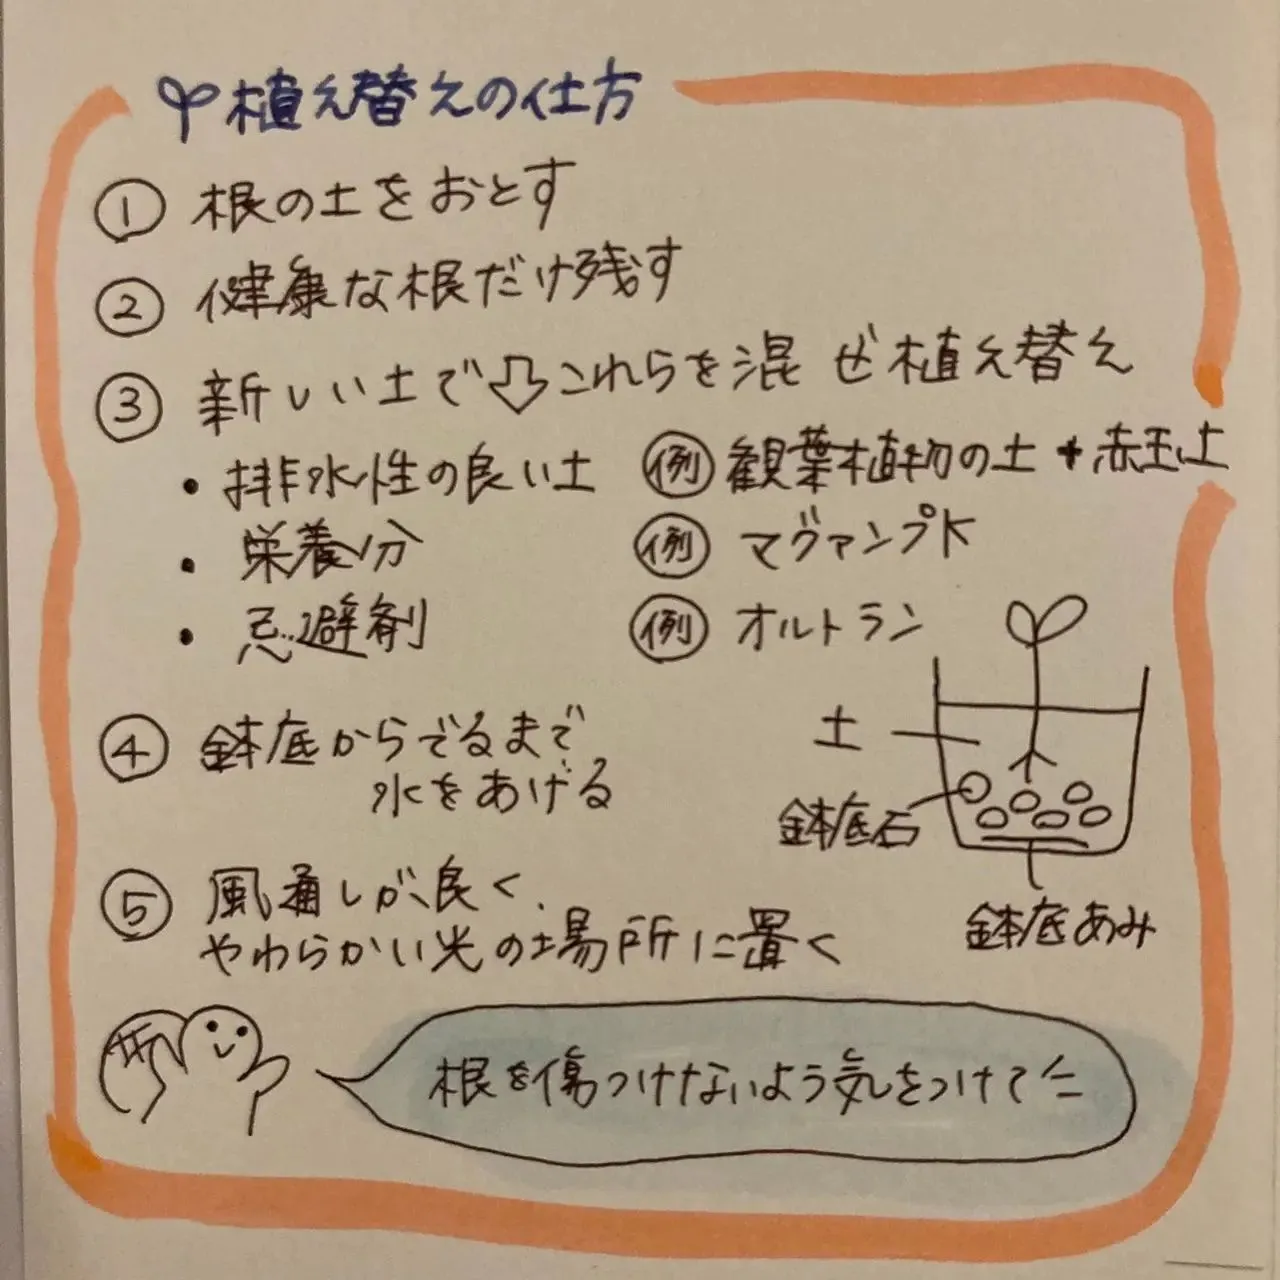 植え替えの仕方
① 根の土をおとす
② 健康な根だけ残す
③ 新しい土で⇩これらを混ぜ植え替え
・排水性の良い土 例 観葉植物の土+赤玉土
・栄養分 例 マグァンプK
・忌避剤 例 オルトラン
④ 鉢底からでるまで
水をあげる
土
鉢底石
鉢底あみ
⑤ 風通しが良く、
やわらかい光の場所に置く
根を傷つけないよう気をつけて